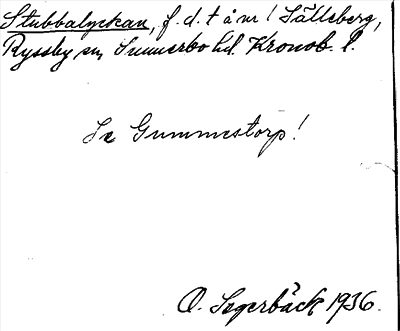 Stubbalyckan, f.d. t å nr 1 Sälleberg,
Ryssby sn, Sunnerbo hd. Kronob. l.
Se Gummestorp!
O. Segerbäck 1936.